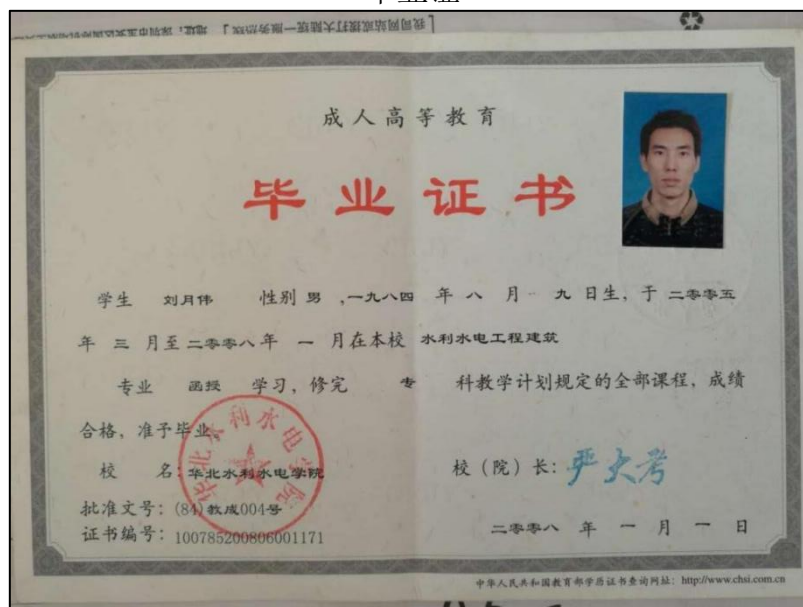 成人高等教育
毕业证书
学生 刘月伟 性别 男 ,一九八四 年 八 月 九 日生, 于 二零零五
年 三 月至 二零零八 年 一 月在本校 水利水电工程建筑
专业 函授 学习, 修完 专 科教学计划规定的全部课程, 成绩
合格, 准予毕业。
校 名: 华北水利水电学院
校 (院) 长: 严大考
华北水利水电学院
批准文号: (84)教成004号
二零零八 年 一 月 一 日
证书编号: 100785200806001171
中华人民共和国教育部学历证书查询网址: http://www.chsi.com.cn